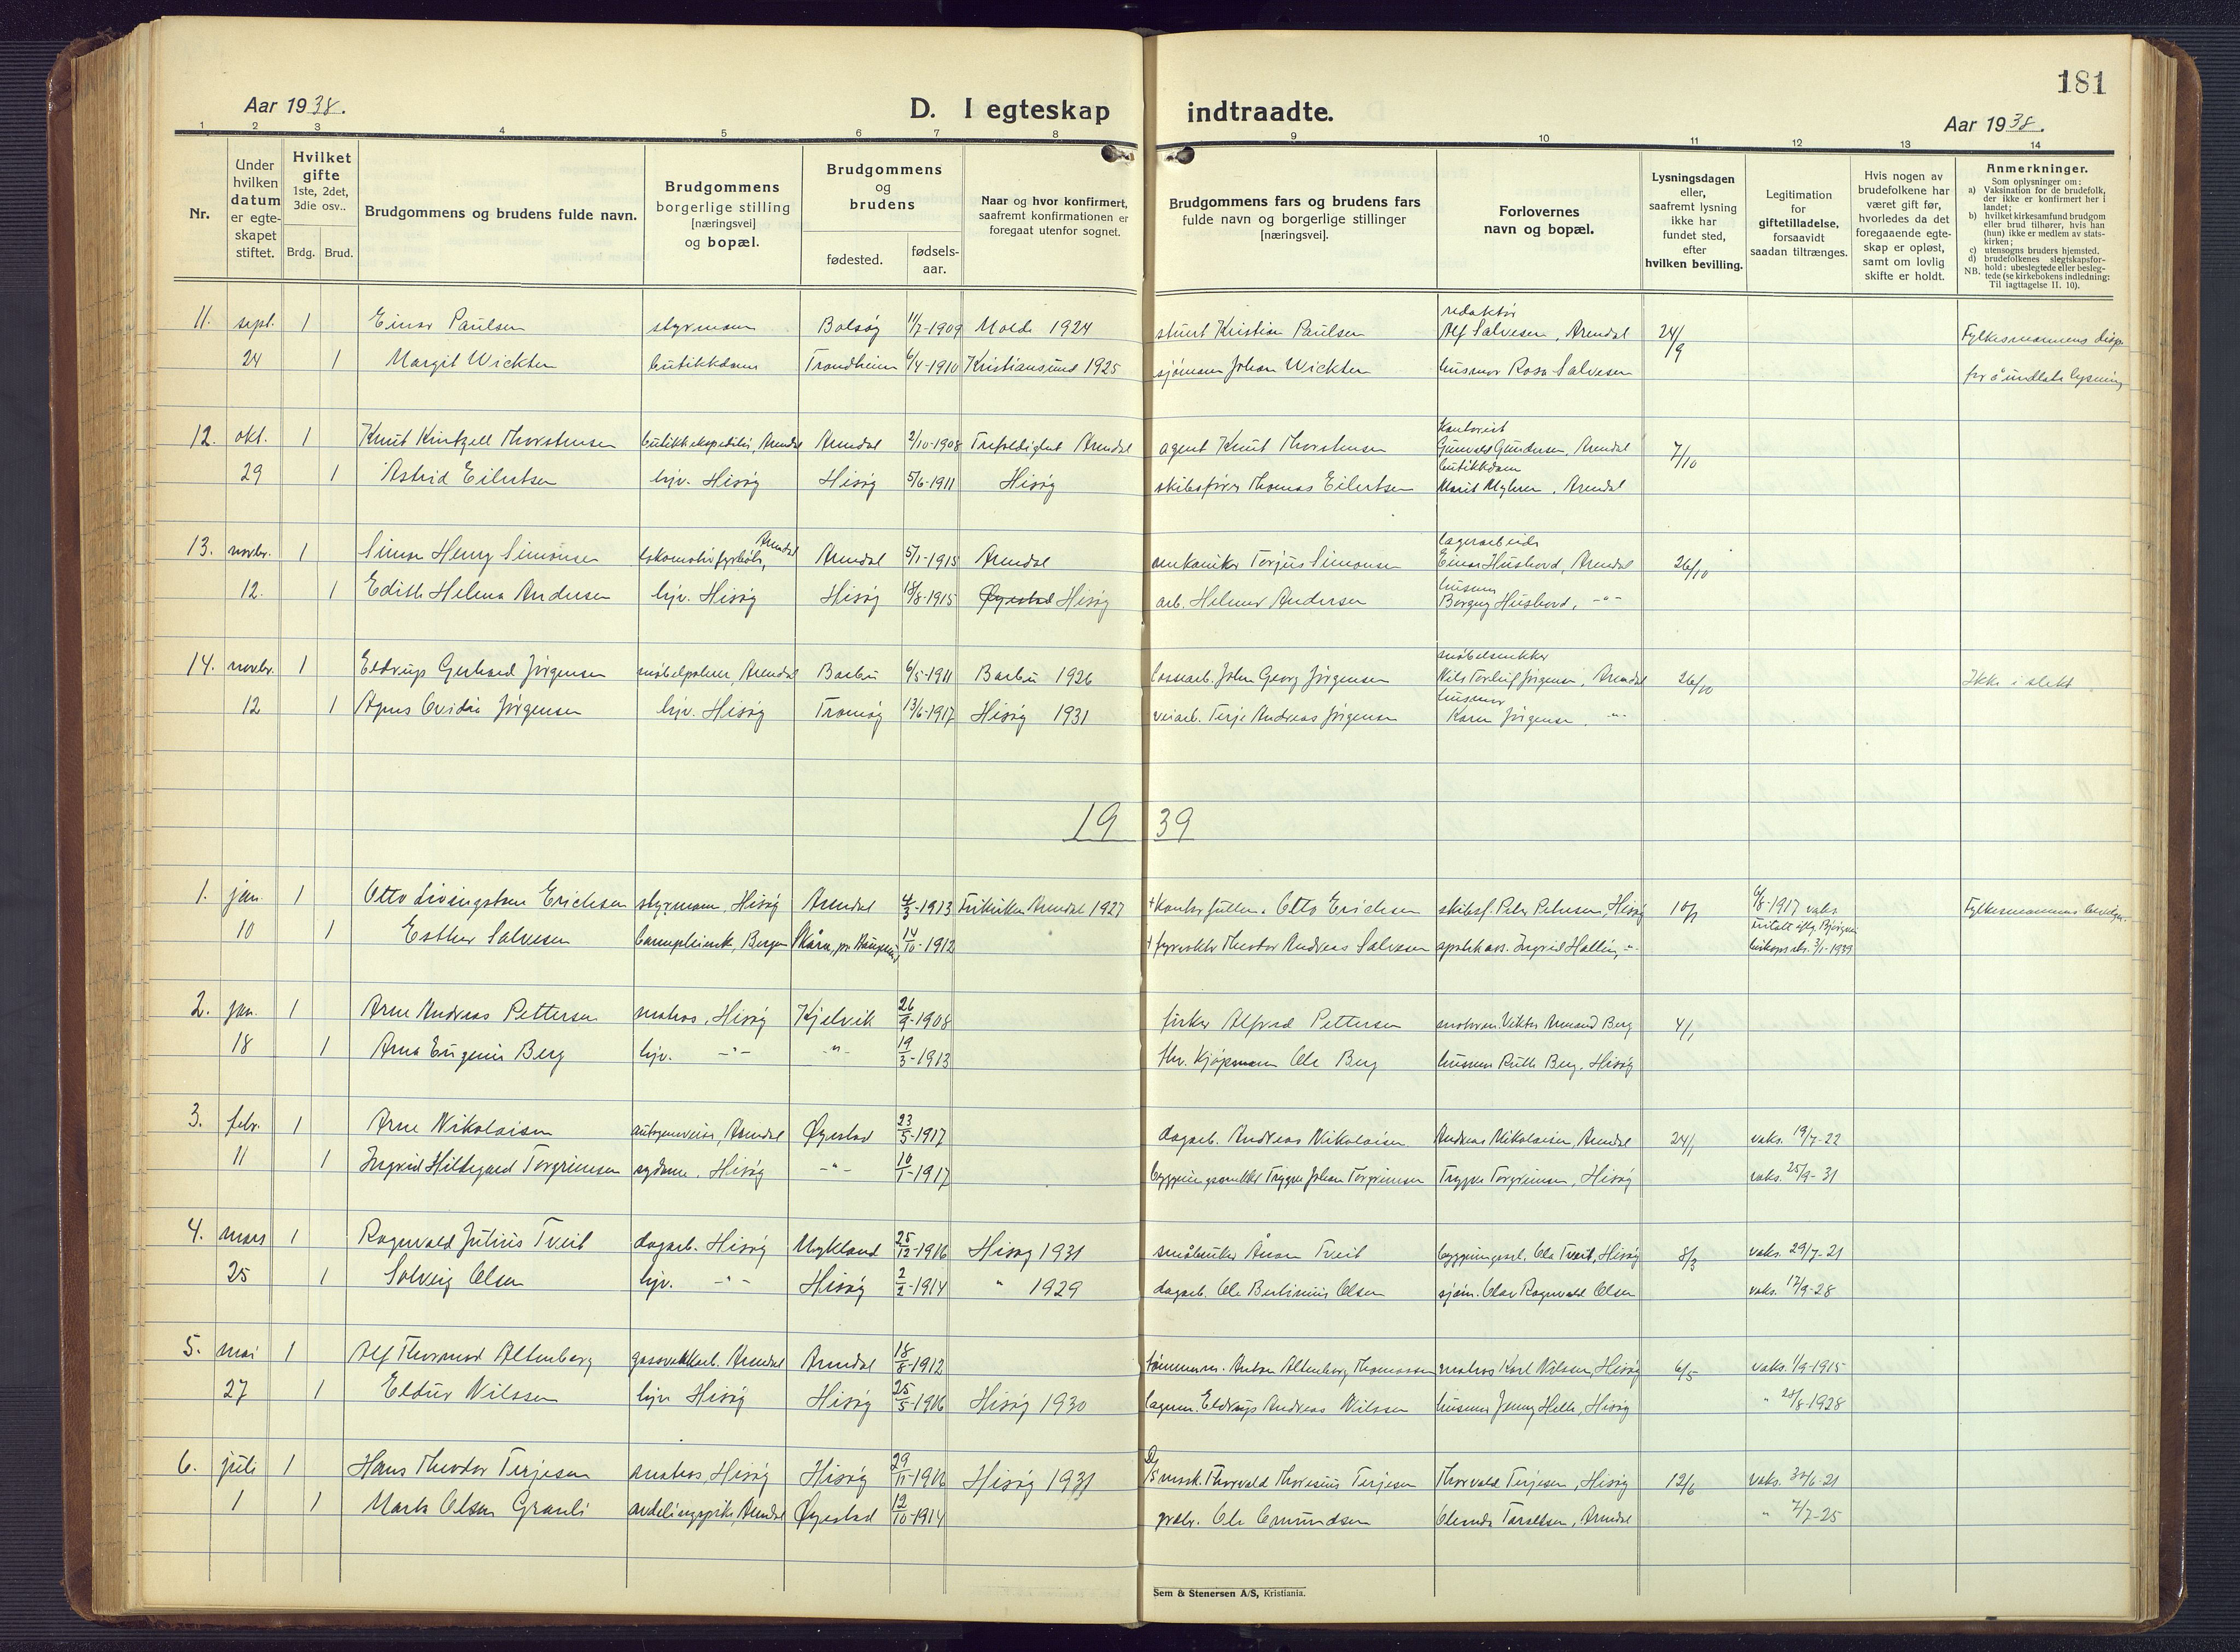 181
Aar 1938.
D. I egteskap indtraadte.
Aar 1938.
1 2 3 4 5 6 7 8 9 10 11 12 13 14
Nr.
Under hvilken datum er egte-skapet stiftet.
Hvilket gifte 1ste, 2det, 3die osv..
Brdg. Brud.
Brudgommens og brudens fulde navn.
Brudgommens borgerlige stilling [næringsvei] og bopæl.
Brudgommens og brudens
fødested.
fødsels-aar.
Naar og hvor konfirmert, saafremt konfirmationen er foregaat utenfor sognet.
Brudgommens fars og brudens fars fulde navn og borgerlige stillinger [næringsvei].
Forlovernes navn og bopæl.
Lysningsdagen eller, saafremt lysning ikke har fundet sted, efter hvilken bevilling.
Legitimation for giftetilladelse, forsaavidt saadan tiltrænges.
Hvis nogen av brudefolkene har været gift før, hvorledes da det foregaaende egte-skap er opløst, samt om lovlig skifte er holdt.
Anmerkninger.
Som oplysninger om:
a) Vaksination for de brudefolk, der ikke er konfirmert her i landet;
b) hvilket kirkesamfund brudgom eller brud tilhører, hvis han (hun) ikke er medlem av stats-kirken;
c) utensogns bruders hjemsted.
d) brudefolkenes slegtskapsfor-hold: ubeslegtede eller besleg-tede (se kirkebokens indledning: Til iagttagelse II. 10).
NB.
redaktør
11. sept. 1 Einar Paulsen styrmann Bolsøy 11/7-1909 Molde 1924 stuert Kristian Paulsen Alf Salvesen, Arendal 24/9 Fylkesmannens disp.
24 1 Margit Wickten butikkdame Trondheim 6/4-1910 Kristiansund 1925 sjømann Johan Wickten husmor Rosa Salvesen for å undlate lysning
kontorist
12. okt. 1 Knut Kintzell Thorstensen butikkekspeditør, Arendal Arendal 2/10-1908 Trefoldighet Arendal agent Knut Thorstensen Gunvald Gundersen, Arendal 7/10
butikkdame
29 1 Astrid Eilertsen hjv. Hisøy Hisøy 5/6-1911 Hisøy skibsfører Thomas Eilertsen Marit Myhren, Arendal
lagerarbeider
13. novbr. 1 Simon Henry Simonsen lokomotivfyrbøter, Arendal Arendal 5/1-1915 Arendal mekaniker Torjus Simonsen Einar Hushovd, Arendal 26/10
husmor
12. 1 Edith Helena Andersen hjv. Hisøy Hisøy 18/8-1915 Øyestad Hisøy arb. Helmer Andersen Borgny Hushovd, -"-
møbelsnekker
14. novbr. 1 Eldrup Gerhard Jörgensen møbelpolerer, Arendal Barbu 6/5-1911 Barbu 1926 lossearb. John Georg Jörgensen Nils Torleif Jörgensen, Arendal 26/10 Ikke i slekt
husmor
12 1 Agnes Ovidia Jörgensen hjv. Hisøy Tromøy 13/6-1917 Hisøy 1931 veiarb. Terje Andreas Jörgensen Karen Jörgensen. -"-
19 39
1. jan. 1 Otto Livingston Erichsen styrmann, Hisøy Arendal 4/3-1913 Frikirken Arendal 1927 + Kontorfullm. Otto Erichsen skibsf. Peter Petersen, Hisøy 10/1 6/8-1917 vaks. Fylkesmannens bevilgn.
10 1 Esther Salvesen Bergen 14/10-1912 + fyrvokter Theodor Andreas Salvesen apotekass. Ingrid Halling -"- 3/1-1939
2. jan. 1 Arne Andreas Pettersen matros, Hisøy Kjelvik 26/9-1908 fisker Alfred Pettersen Viktor Armand Berg 4/1
18 1 Arna Eugenie Berg hjv. -"- -"- 19/3-1913 Hv. Kjøpmann Ole Berg husmor Ruth Berg, Hisøy
3. febr. 1 Arne Nikolaisen autogensveiser, Arendal Øyestad 23/5-1917 dagarb. Andreas Nikolaisen Andreas Nikolaisen, Arendal 24/1 vaks. 19/7-22
11 1 Ingrid Hildegard Torgrimsen sydame, Hisøy -"- 10/1-1917 bygningssnekker Trygve Johan Torgrimsen Trygve Torgrimsen, Hisøy vaks. 25/9-31
4. mars 1 Ragnvald Julius Tveit dagarb. Hisøy Mykland 25/12-1916 Hisøy 1931 småbruker Ånon Tveit bygningsarb. Ole Tveit, Hisøy 8/3 vaks. 29/7-21
25 1 Solveig Olsen hjv. -"- Hisøy 2/2-1914 " 1929 dagarb. Ole Bertinius Olsen sjøm. Olav Ragnvald Olsen vaks. 17/9-28
5. mai 1 Alf Thormod Altenborg gassverkarb. Arendal Arendal 18/8-1912 tømmerm. Anton Altenborg Thomassen matros Karl Nilsen, Hisøy 6/5 vaks. 1/9-1915
27 1 Eldur Nilssen hjv. Hisøy Hisøy 25/5-1916 Hisøy 1930 lagerm. Eldrup Andreas Nilssen husmor Jenny Helle, Hisøy " 28/8-1928
6. juli 1 Hans Theodor Terjesen matros, Hisøy Hisøy 29/11-1916 Hisøy 1931 Thorvald Thoresius Terjesen Thorvald Terjesen, Hisøy 12/6 vaks. 30/6-21
1 1 Marta Olsen Granli avdelingspike, Arendal Øyestad 12/10-1914 grdbr. Ole Omundsen Olemda Taraldsen, Arendal " 7/7-25
Sem & Stenersen A/S, Kristiania.